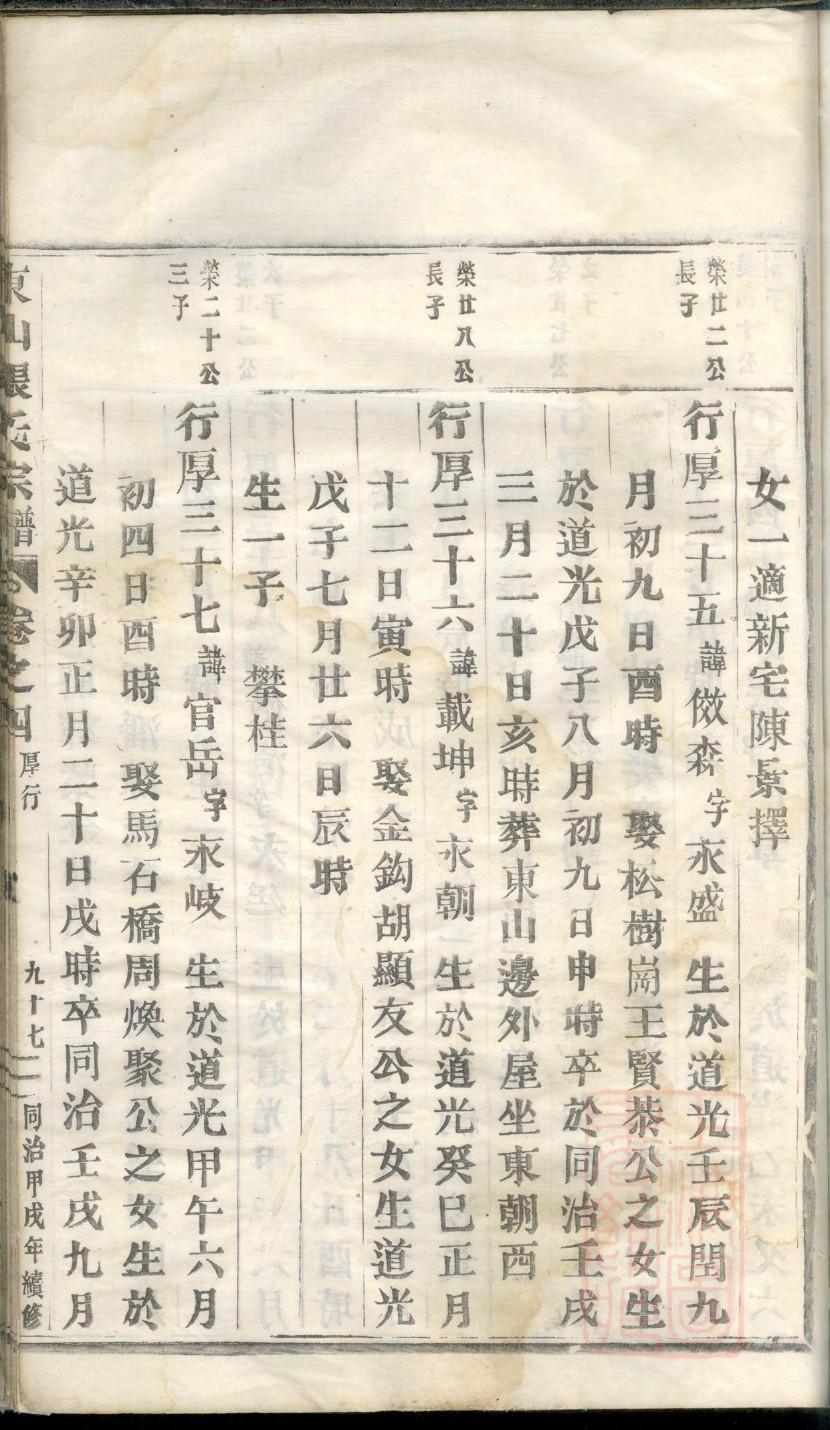 女一適新宅陳景擇
榮廿二公
長子
行厚三十五諱傚森字永盛 生於道光壬辰閏九
月初九日酉時 娶松樹崗王賢恭公之女生
於道光戊子八月初九日申時卒於同治壬戌
三月二十日亥時葬東山邊外屋坐東朝西
榮廿八公
長子
行厚三十六諱載坤字永朝 生於道光癸巳正月
十二日寅時 娶金鈎胡顯友公之女生道光
戊子七月廿六日辰時
生一子 攀桂
榮二十公
三子
行厚三十七諱官岳字永岐 生於道光甲午六月
初四日酉時 娶馬石橋周煥聚公之女生於
道光辛卯正月二十日戌時卒同治壬戌九月
東山張氏宗譜 卷之四 厚行 九十七 同治甲戌年續修